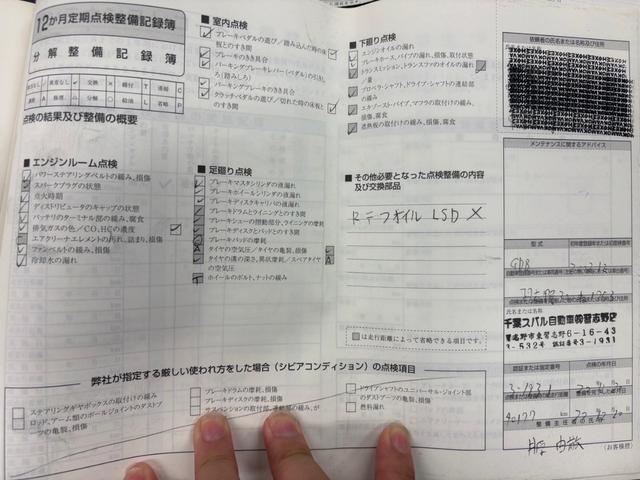 12か月定期点検整備記録簿
分解整備記録簿
点検の結果及び整備の概要
■エンジンルーム点検
パワーステアリングベルトの緩み、損傷
スパークプラグの状態
点火時期
ディストリビュータのキャップの状態
バッテリのターミナル部の緩み、腐食
排気ガスの色／CO,HCの濃度
エアクリーナエレメントの汚れ、詰まり、損傷
ファンベルトの緩み、損傷
冷却水の漏れ
■室内点検
ブレーキペダルの遊び／踏み込んだ時の床板とのすき間
ブレーキのきき具合
パーキングブレーキレバー（ペダル）の引きしろ(踏みしろ)
パーキングブレーキのきき具合
クラッチペダルの遊び／切れた時の床板とのすき間
■足廻り点検
ブレーキマスタシリンダの液漏れ
ブレーキホイールシリンダの液漏れ
ブレーキディスクキャリパの液漏れ
ブレーキドラムとライニングとのすき間
ブレーキシューの摺動部分、ライニングの摩耗
ブレーキディスクとパッドとのすき間
ブレーキパッドの摩耗
タイヤの空気圧／タイヤの亀裂、損傷
タイヤの溝の深さ、異状摩耗／スペアタイヤの空気圧
ホイールのボルト、ナットの緩み
■下廻り点検
エンジンオイルの漏れ
ブレーキホース、パイプの漏れ、損傷、取付状態
トランスミッション、トランスファのオイルの漏れ／量
プロペラ・シャフト、ドライブ・シャフトの連結部の緩み
エキゾースト・パイプ、マフラの取付けの緩み、損傷、腐食
遮熱板の取付けの緩み、損傷、腐食
■その他必要となった点検整備の内容及び交換部品
Rデフオイル LSD ×
は走行距離によって省略できる項目です。
依頼者の氏名または名称及び住所
メンテナンスに関するアドバイス
型式
GDB
氏名または名称
千葉スバル自動車㈱習志野
習志野市東習志野6-16-43
3-532号
点検の年月日
3-1931
40177 km
整備主任者の氏名
(お客様控)
弊社が指定する厳しい使われ方をした場合（シビアコンディション）の点検項目
ステアリングギヤボックスの取付けの緩み
ロッド、アーム類のボールジョイントのダストブーツの亀裂、損傷
ブレーキドラムの摩耗、損傷
ブレーキディスクの摩耗、損傷
サスペンションの取付部、連結部の緩み、が
ドライブシャフトのユニバーサル・ジョイント部のダストブーツの亀裂、損傷
燃料漏れ